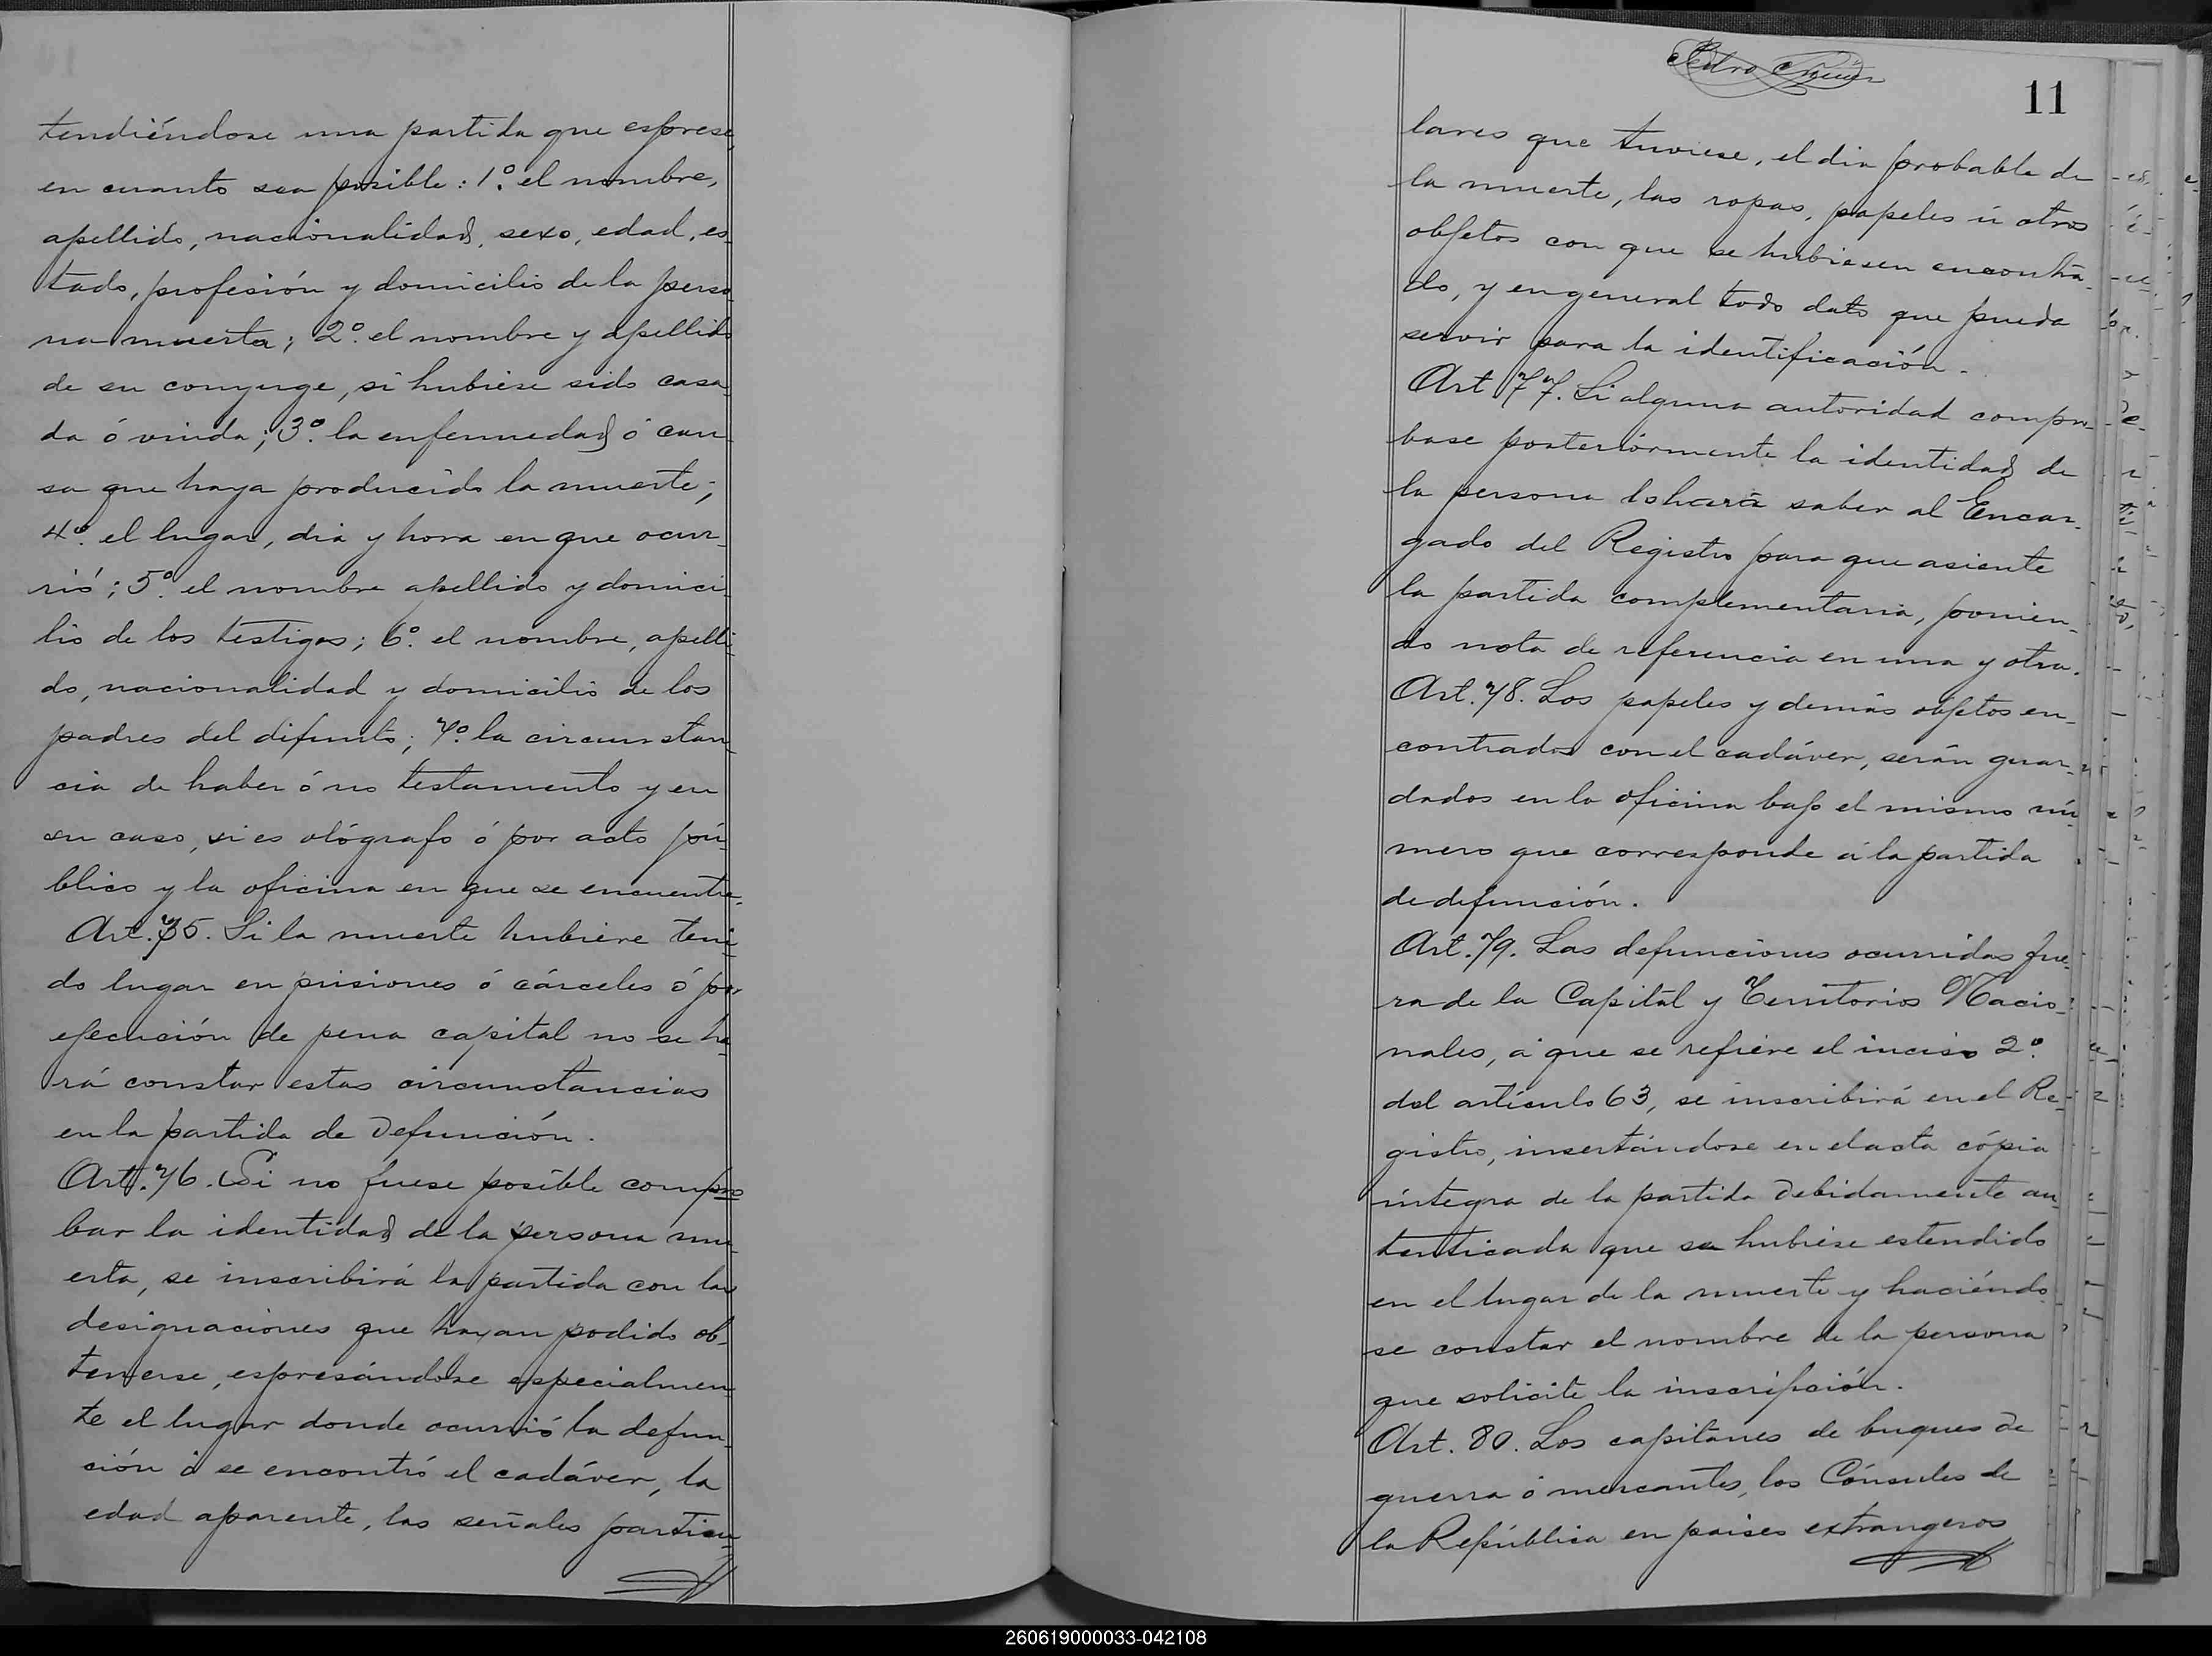 tendiéndose una partida que esprese,
en cuanto sea posible: 1º. el nombre,
apellido, nacionalidad, sexo, edad, es-
tado, profesión y domicilio de la perso-
na muerta; 2º. el nombre y apellido
de su conyuge, si hubiese sido casa-
da ó viuda; 3º. la enfermedad ó cau-
sa que haya producido la muerte;
4º. el lugar, dia y hora en que ocur-
rió; 5º. el nombre apellido y domici-
lio de los testigos; 6º. el nombre, apelli-
do, nacionalidad y domicilio de los
padres del difunto; 7º. la circunstan-
cia de haber ó no testamento y en
su caso, si es ológrafo ó por acto pú-
blico y la oficina en que se encuentre.
Art. 75. Si la muerte hubiere teni-
do lugar en prisiones ó cárceles ó por
ejecución de pena capital no se ha-
rá constar estas circunstancias
en la partida de defunción.
Art. 76. Si no fuese posible compro-
bar la identidad de la persona mu-
erta, se inscribirá la partida con las
designaciones que hayan podido ob-
tenerse, espresándose especialmen-
te el lugar donde ocurrió la defun-
ción ó se encontró el cadáver, la
edad aparente, las señales particu-
Pedro
11
lares que tuviese, el dia probable de
la muerte, las ropas, papeles ú otros
objetos con que se hubiesen encontra-
do, y en general todo dato que pueda
servir para la identificación.
Art 77. Si alguna autoridad compro-
base posteriórmente la identidad de
la persona lo hará saber al Encar-
gado del Registro para que asiente
la partida complementaria, ponien-
do nota de referencia en una y otra.
Art. 78. Los papeles y demás objetos en-
contrados con el cadáver, serán guar-
dados en la oficina bajo el mismo nú-
mero que corresponde á la partida
de defunción.
Art. 79. Las defunciones ocurridas fue-
ra de la Capital y Territorios Nacio-
nales, á que se refiere el inciso 2º.
del artículo 63, se inscribirá en el Re-
gistro, insertándose en el acta cópia
integra de la partida debidamente au-
tenticada que se hubiese estendido
en el lugar de la muerte y haciéndo-
se constar el nombre de la persona
que solicite la inscripción.
Art. 80. Los capitanes de buques de
guerra ó mercantes, los Cónsules de
la República en paises extrangeros
260619000033-042108